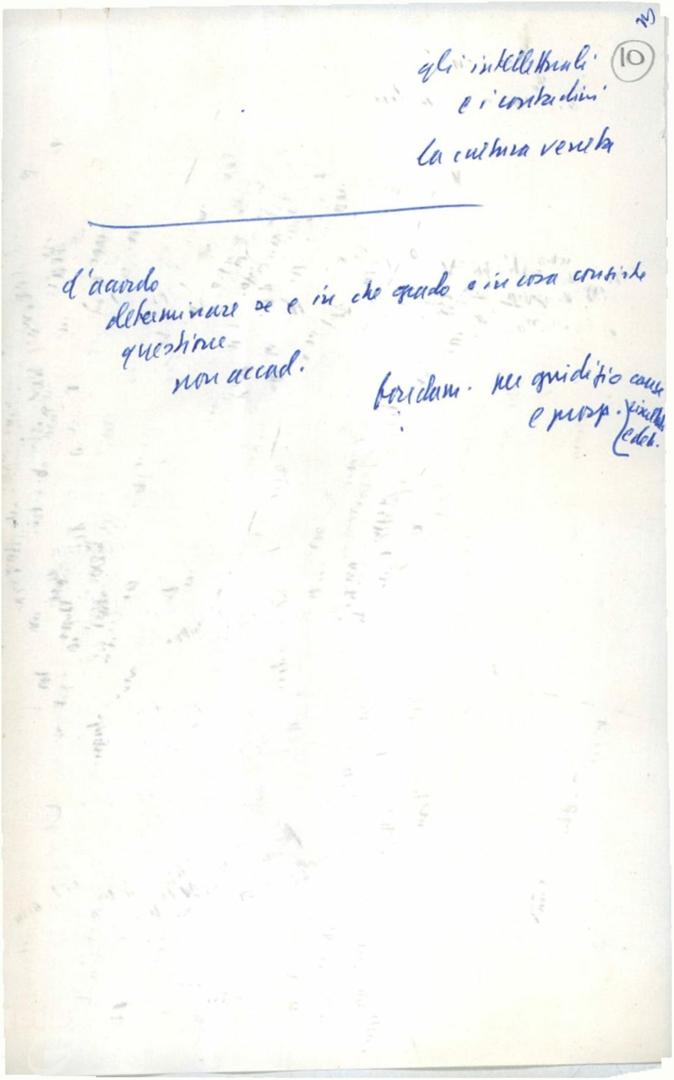 10
gli intellettuali
e i contadini
la cultura veneta
d'accordo
determinare se e in che grado e in cosa consiste
questione
non accad.
fondam. per giudizio cause
e prosp.
e deb.